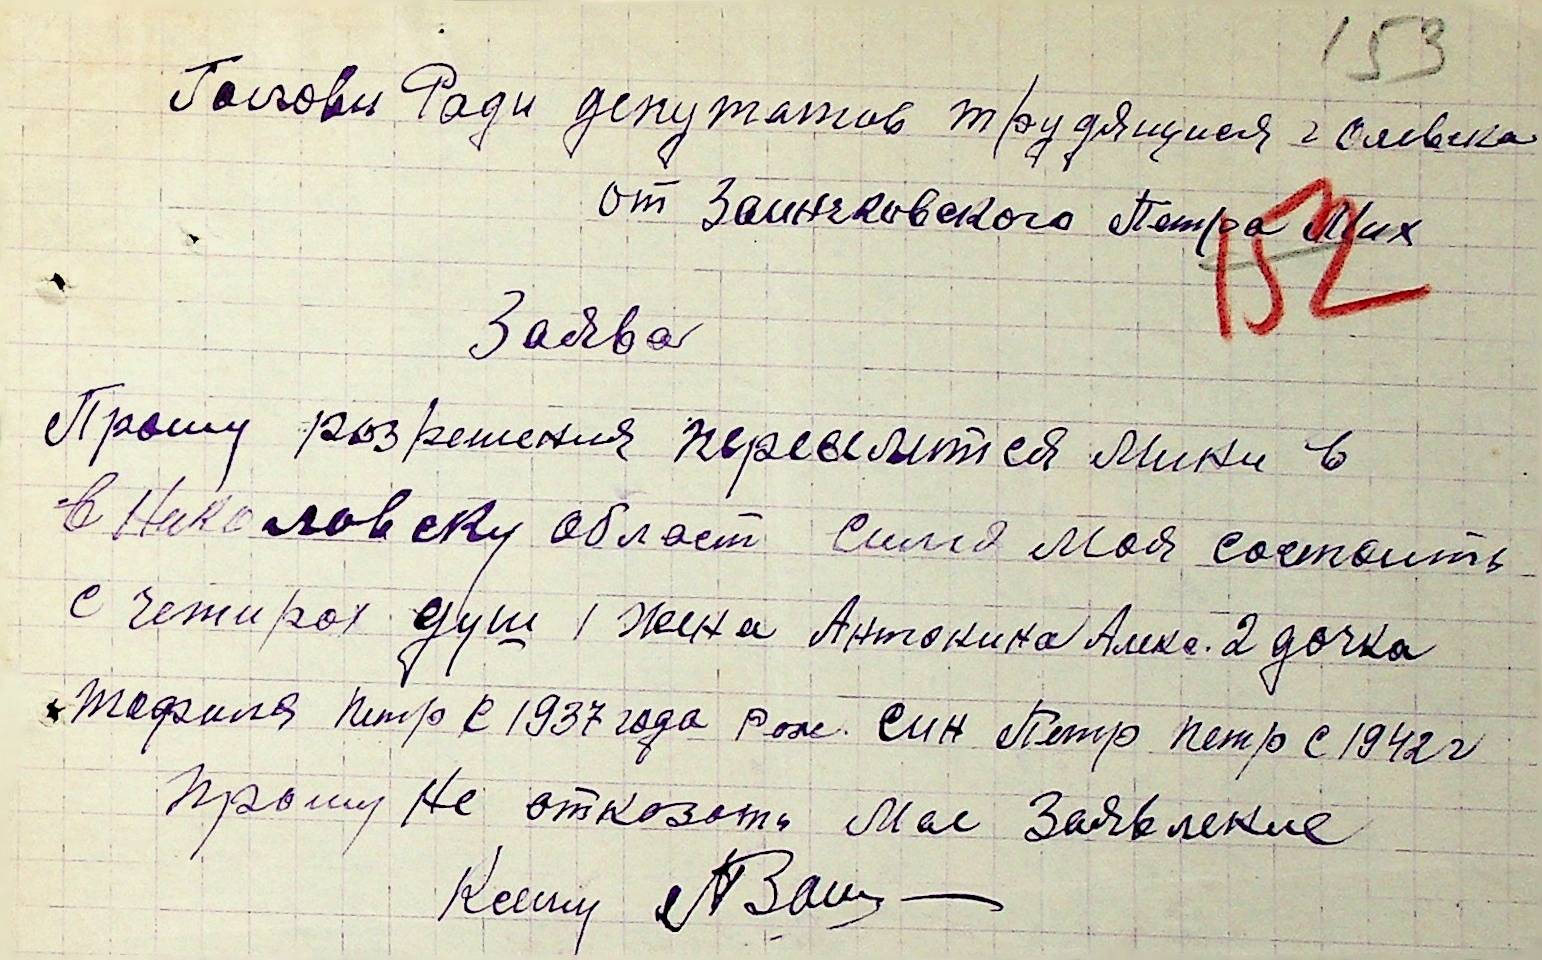 153
Голови Ради депутатов трудящися г Олевска
от Заинчковского Петра Мих
152
Заява
Прошу розрешения переселится мини в
в Николовску област Симя моя состоить
с четирох душ 1 жена Антонина Алекс. 2 дочка
Петр с 1937 года рож. син Петр Петр с 1942 г
Прошу не отказать мое Заявление